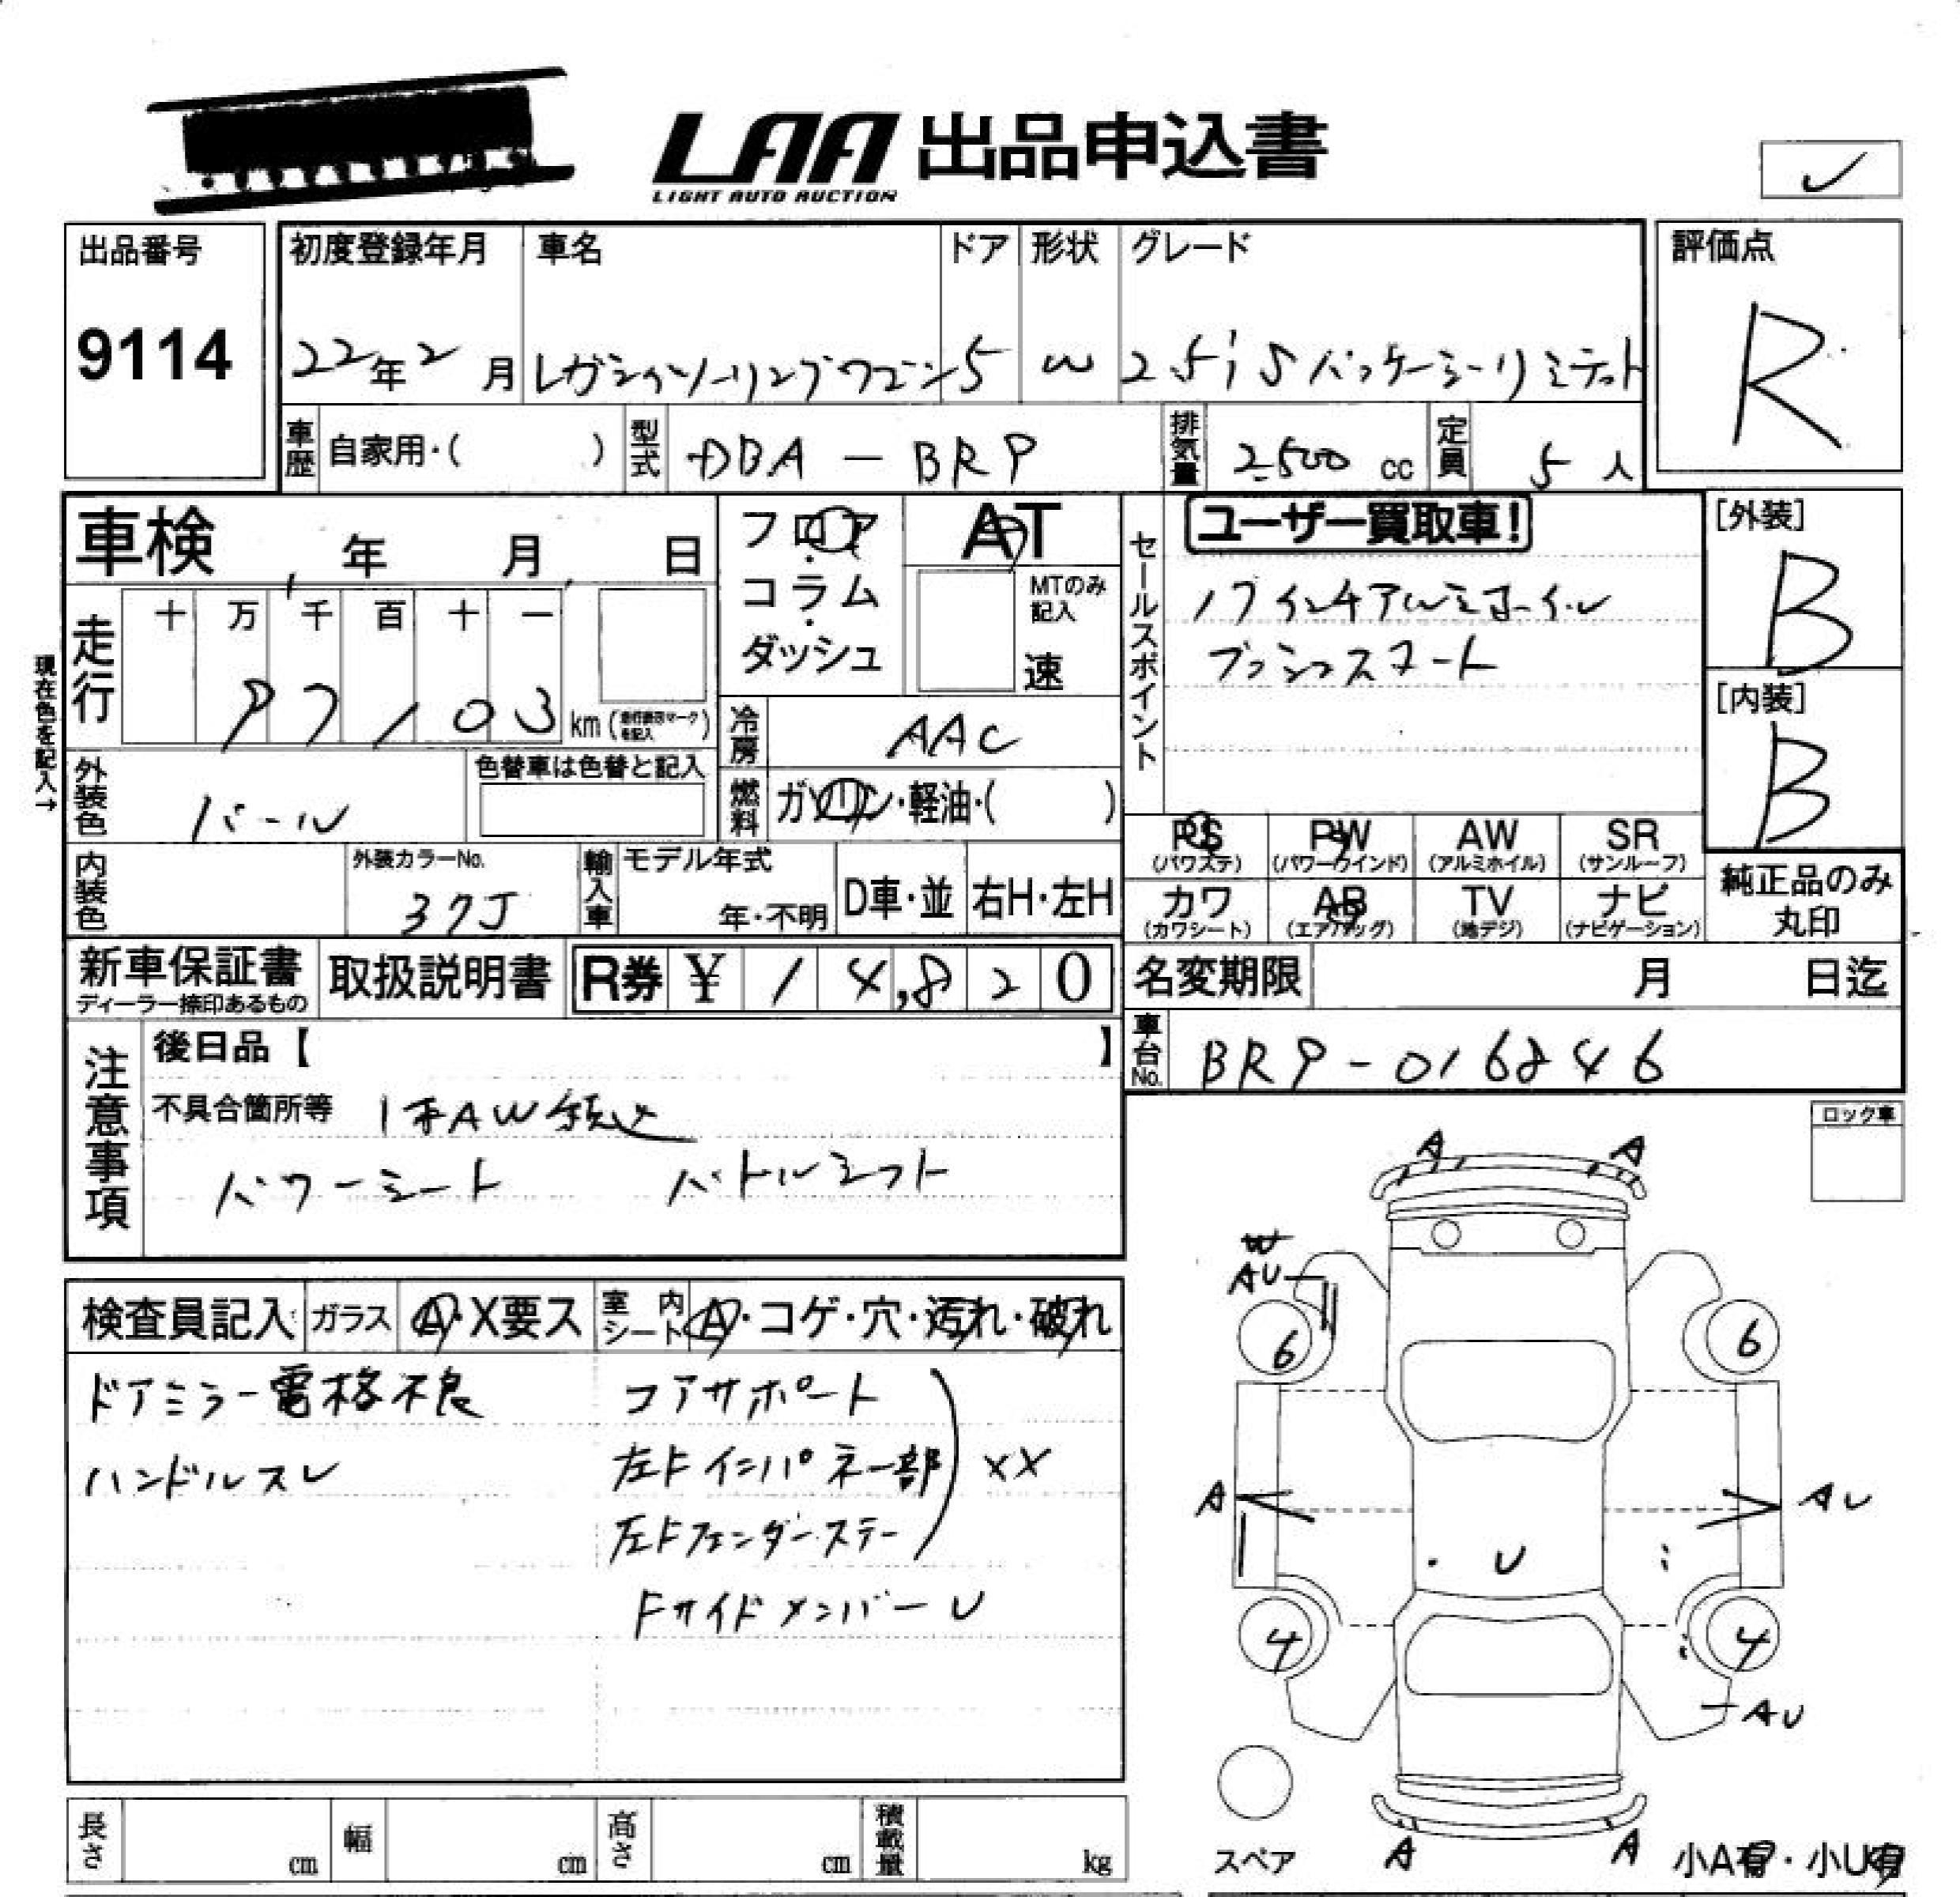 LAA 出品申込書
LIGHT AUTO AUCTION
出品番号 初度登録年月 車名 ドア 形状 グレード 評価点
9114 22年2月 レガシィツーリングワゴン 5 W 2.5i Sパッケージリミテット R
車歴 自家用・( ) 型式 DBA-BR9 排気量 2500 cc 定員 5 人
車検 年 月 日 フロア・コラム・ダッシュ AT
MTのみ記入 速
セールスポイント ユーザー買取車!
17インチアルミホイル
プッシュスタート
[外装] B
[内装] B
現在色を記入→
走行 十 万 千 百 十 一
97103 km
冷房 AAC
外装色 パール 色替車は色替と記入
燃料 ガソリン・軽油・( )
PS (パワステ) PW (パワーウインド) AW (アルミホイル) SR (サンルーフ)
カワ (カワシート) AB (エアバッグ) TV (地デジ) ナビ (ナビゲーション)
純正品のみ丸印
内装色 外装カラーNo. 37J 輸入車 モデル年式 年・不明 D車・並 右H・左H
新車保証書 ディーラー捺印あるもの 取扱説明書 R券 ¥14,820
名変期限 月 日迄
車台No. BR9-016846
注意事項 後日品【 】
不具合箇所等 1本AW
パワーシート パドルシフト
ロック車
検査員記入 ガラス A・X要ス 室内シート A・コゲ・穴・汚れ・破れ
ドアミラー電格不良 コアサポート
ハンドルスレ 左Fインパネ一部 XX
左Fフェンダーステー
Fサイドメンバー U
A A
W
AU
6 6
A AU
U
4 4
AU
A A
スペア 小A有・小U有
長さ cm 幅 cm 高さ cm 積載量 kg